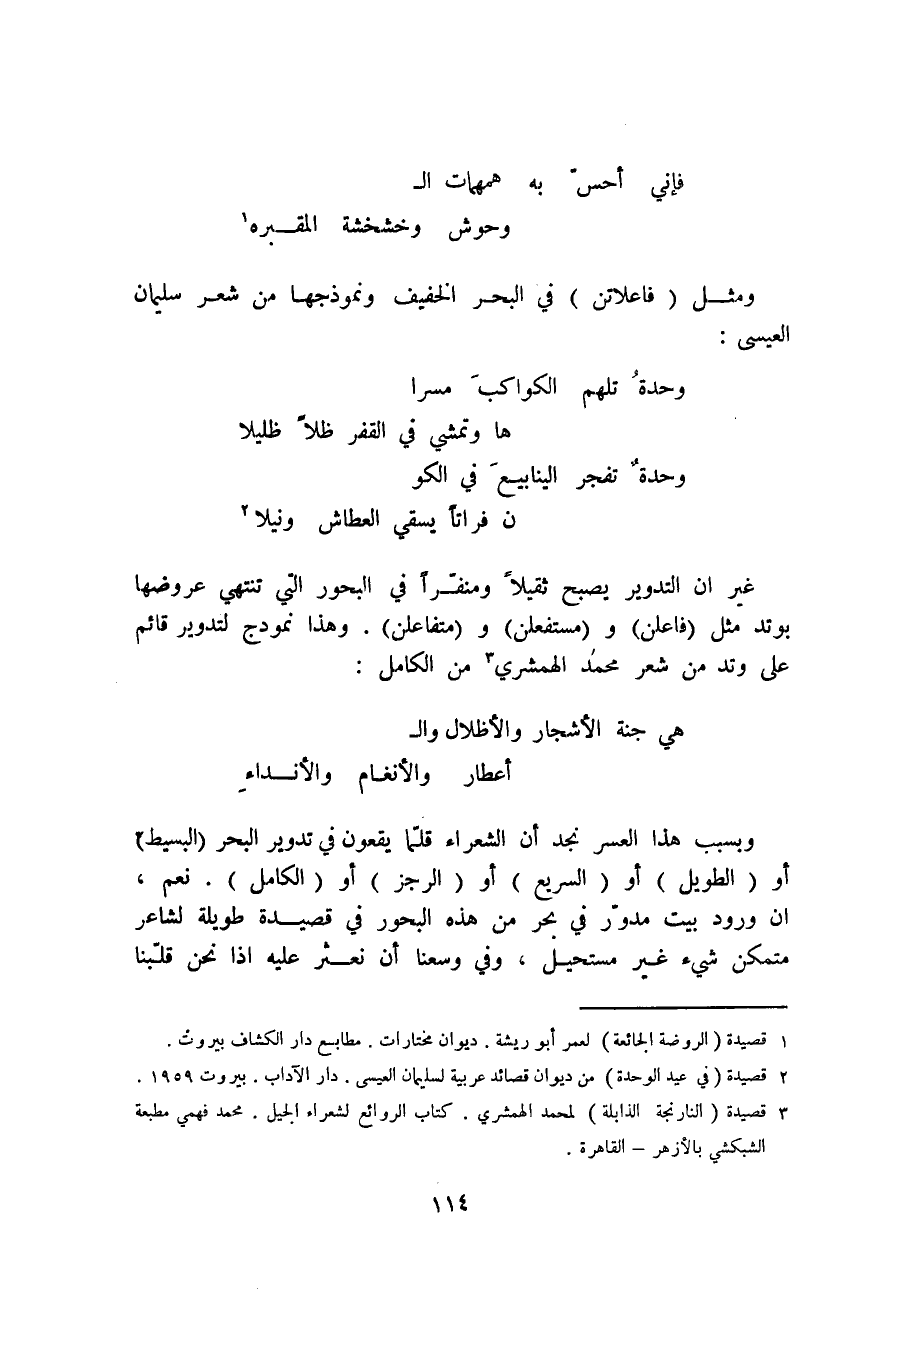 فإني أحسّ به همهمات الـ
وحوش وخشخشة المقـــبره١
ومثـــل ( فاعلاتن ) في البحـر الخفيف ونموذجهـا من شعـر سليمان
العيسى :
وحدةُ تلهم الكواكبَ مسرا
ها وتمشي في القفر ظلاًّ ظليلا
وحدةٌ تفجر الينابيـعَ في الكو
ن فراتاً يسقي العطاش ونيلا٢
غير ان التدوير يصبح ثقيلاً ومنفّـراً في البحور التي تنتهي عروضها
بوتد مثل (فاعلن) و (مستفعلن) و (متفاعلن) . وهذا نموذج لتدوير قائم
على وتد من شعر محمد الهمشري٣ من الكامل :
هي جنة الأشجار والأظلال والـ
أعطار والأنغـام والأنـــداءِ
وبسبب هذا العسر نجد أن الشعراء قلّما يقعون في تدوير البحر (البسيط)
أو ( الطويل ) أو ( السريع ) أو ( الرجز ) أو ( الكامل ) . نعم ،
ان ورود بيت مدوّر في بحر من هذه البحور في قصيــدة طويلة لشاعر
متمكن شيء غـير مستحيـل ، وفي وسعنا أن نعـــثر عليه اذا نحن قلّبنا
١ قصيدة ( الروضة الجائعة ) لعمر أبو ريشة . ديوان مختارات . مطابع دار الكشاف بيروت .
٢ قصيدة ( في عيد الوحدة ) من ديوان قصائد عربية لسليمان العيسى . دار الآداب . بيروت ١٩٥٩ .
٣ قصيدة ( النارنجة الذابلة ) لمحمد الهمشري . كتاب الروائع لشعراء الجيل . محمد فهمي مطبعة
الشبكشي بالأزهر – القاهرة .
١١٤